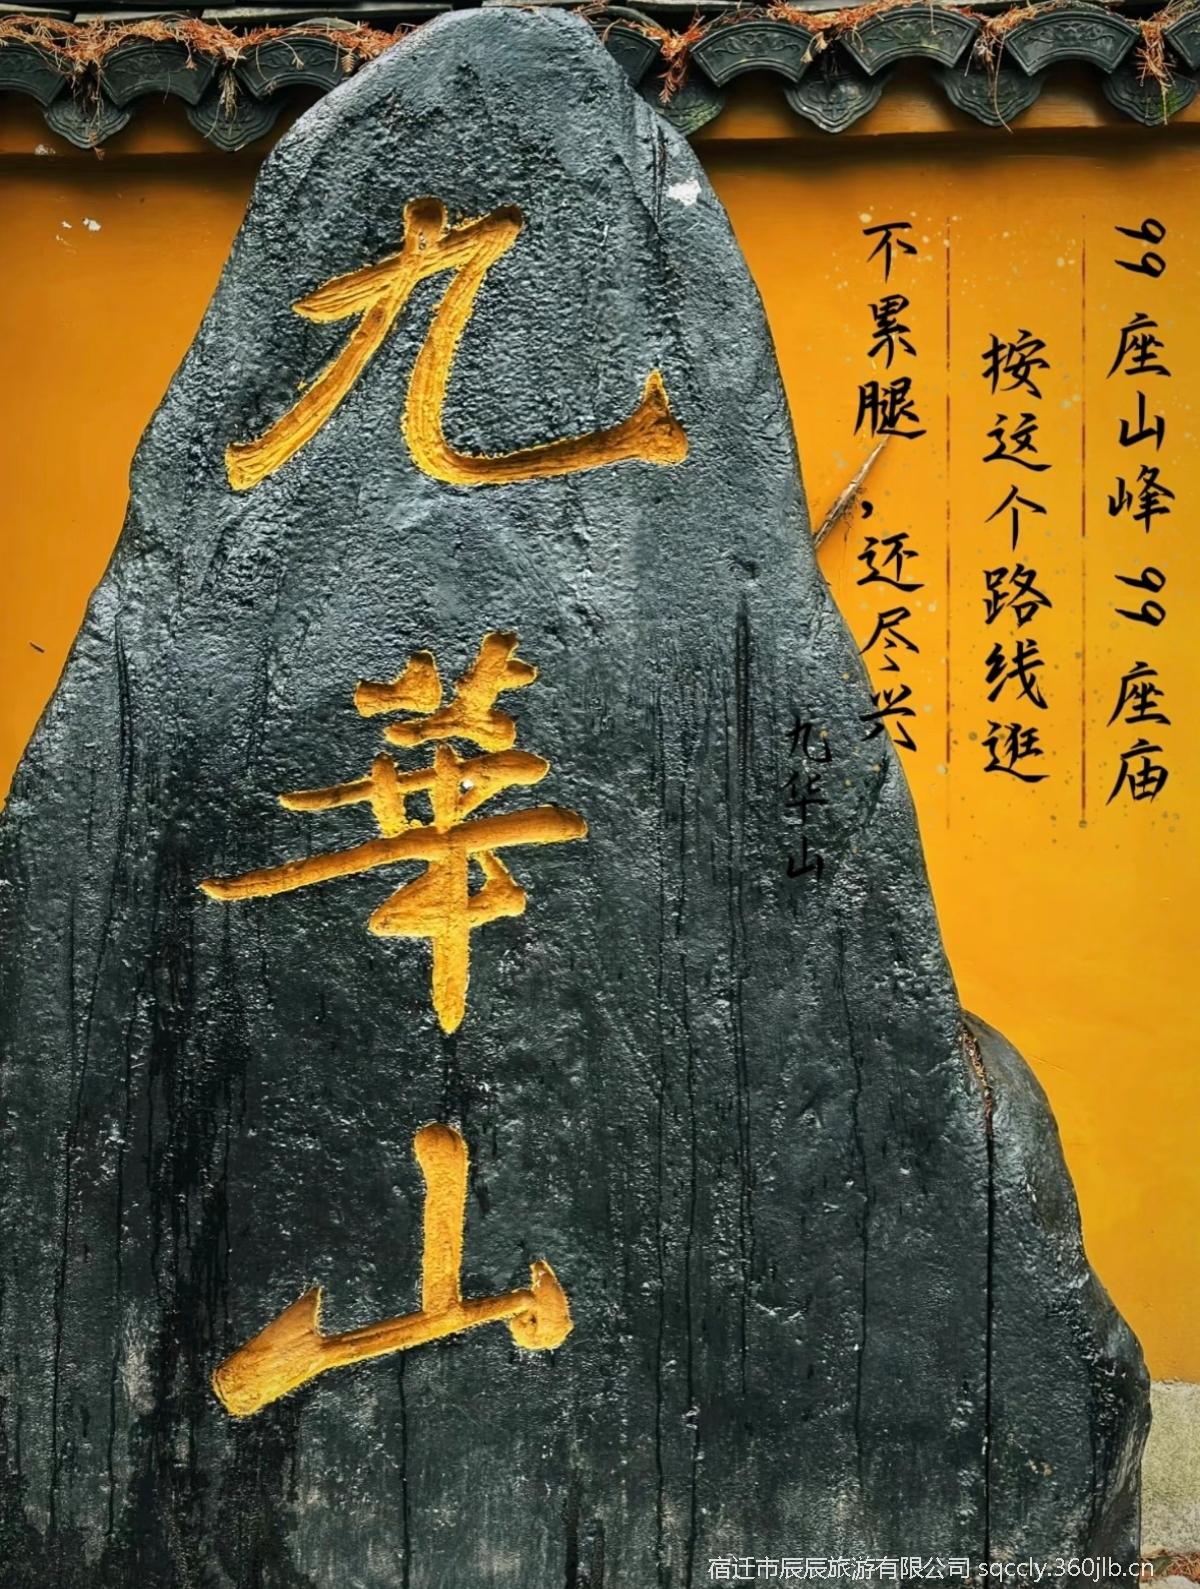 九華山
99座山峰99座庙
按这个路线逛
不累腿，还尽兴
九华山
宿迁市辰辰旅游有限公司 sqccly.360jlb.cn